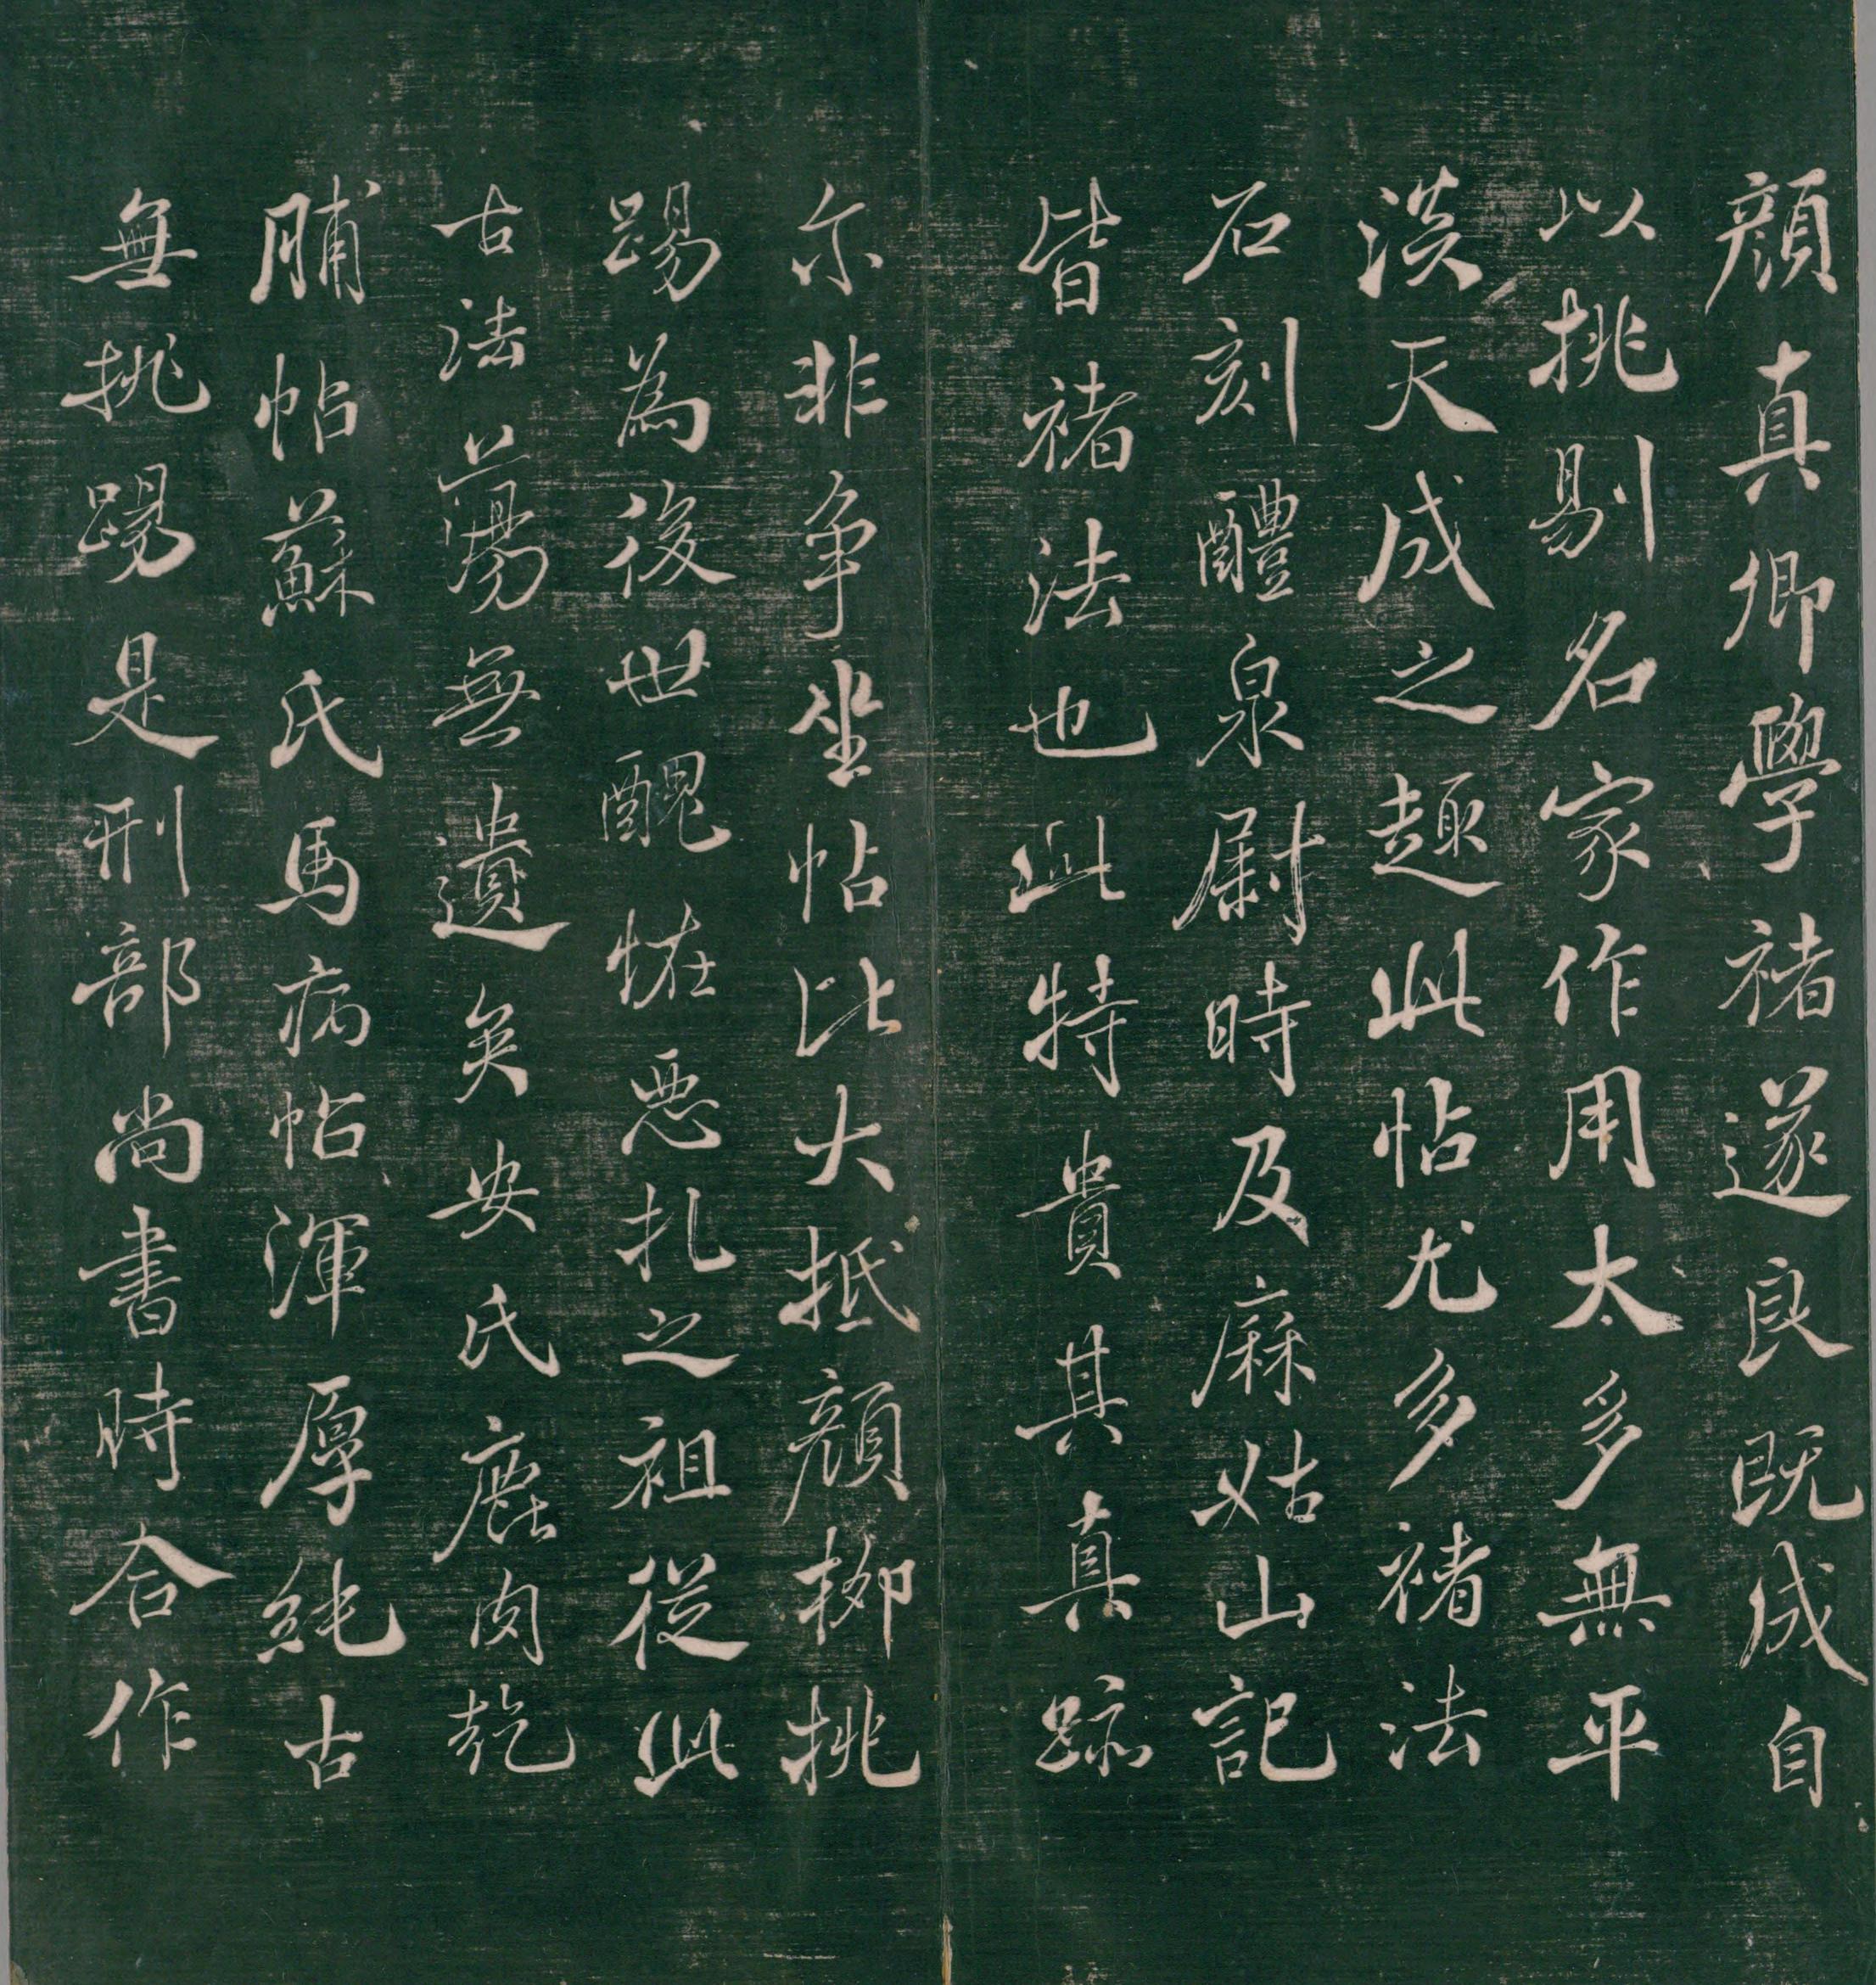 顔真卿學褚遂良既成自
以挑剔名家作用太多無平
淡天成之趣此帖尤多褚法
石刻醴泉尉時及麻姑山記
皆褚法也此特貴其真跡
尓非争坐帖比大抵顔柳挑
踢為後世醜怪惡札之祖從此
古法蕩無遺矣安氏鹿肉乾
脯帖蘇氏馬病帖渾厚純古
無挑踢是刑部尚書時合作